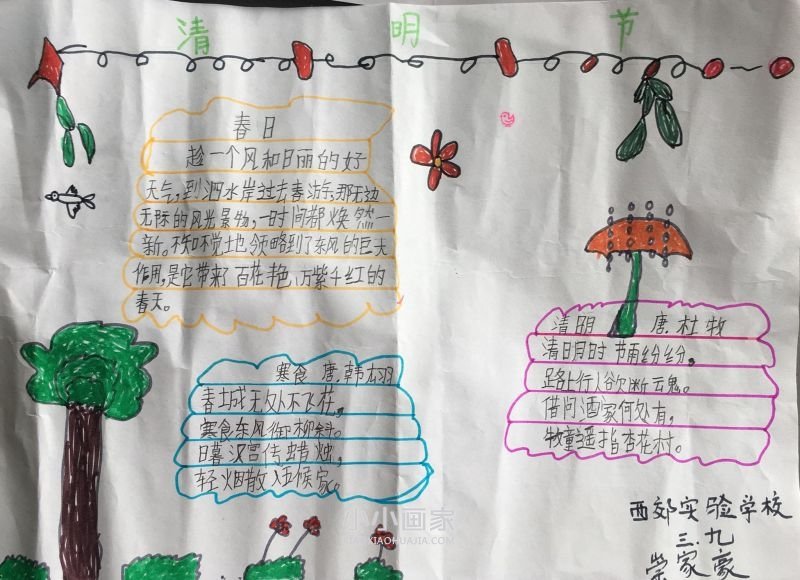 清明节
春日
趁一个风和日丽的好
天气,到泗水岸边去春游,那无边
无际的风光景物,一时间都焕然一
新。不知不觉地领略到了东风的巨大
作用,是它带来百花丰色,万紫千红的
春天。
寒食 唐.韩杰羽
春城无处不飞花,
寒食东风御柳斜。
日暮汉宫传蜡烛,
轻烟散入五候家。
清明 唐.杜牧
清明时节雨纷纷,
路上行人欲断云鬼。
借问酒家何处有,
牧童遥指杏花村。
小小画家
XIAOXIAOHUAJIA.COM
西郊实验学校
三.九
家豪